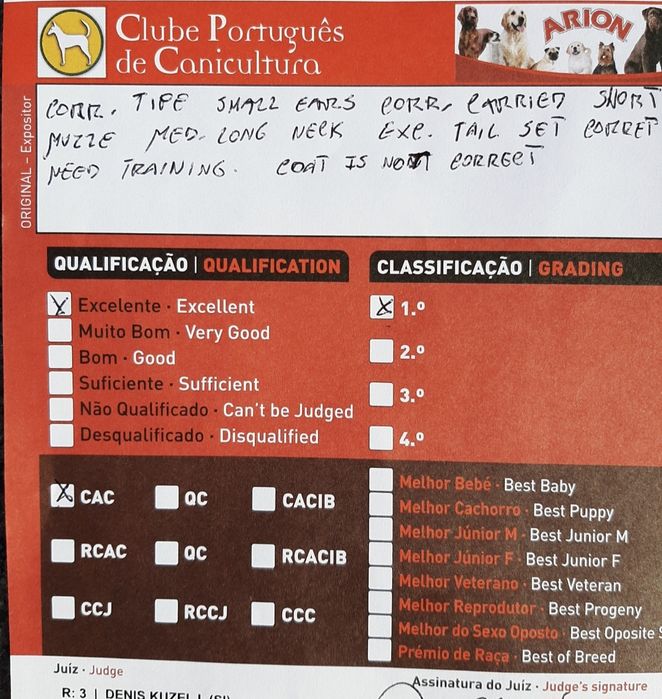 Clube Português
de Canicultura
ARION
ORIGINAL - Expositor
CORR. TIPE SMALL EARS CORR. CARRIED SHORT
MUZZE MED. LONG NECK EXC. TAIL SET CORRET
NEED TRAINING. COAT IS NOT CORRECT
QUALIFICAÇÃO | QUALIFICATION
X Excelente · Excellent
Muito Bom · Very Good
Bom · Good
Suficiente · Sufficient
Não Qualificado · Can't be Judged
Desqualificado · Disqualified
CLASSIFICAÇÃO | GRADING
X 1.º
2.º
3.º
4.º
X CAC QC CACIB
RCAC QC RCACIB
CCJ RCCJ CCC
Melhor Bebé · Best Baby
Melhor Cachorro · Best Puppy
Melhor Júnior M · Best Junior M
Melhor Júnior F · Best Junior F
Melhor Veterano · Best Veteran
Melhor Reprodutor · Best Progeny
Melhor do Sexo Oposto · Best Opposite S
Prémio de Raça · Best of Breed
Juíz · Judge
R: 3 | DENIS KUZELJ (SI)
Assinatura do Juíz · Judge's signature